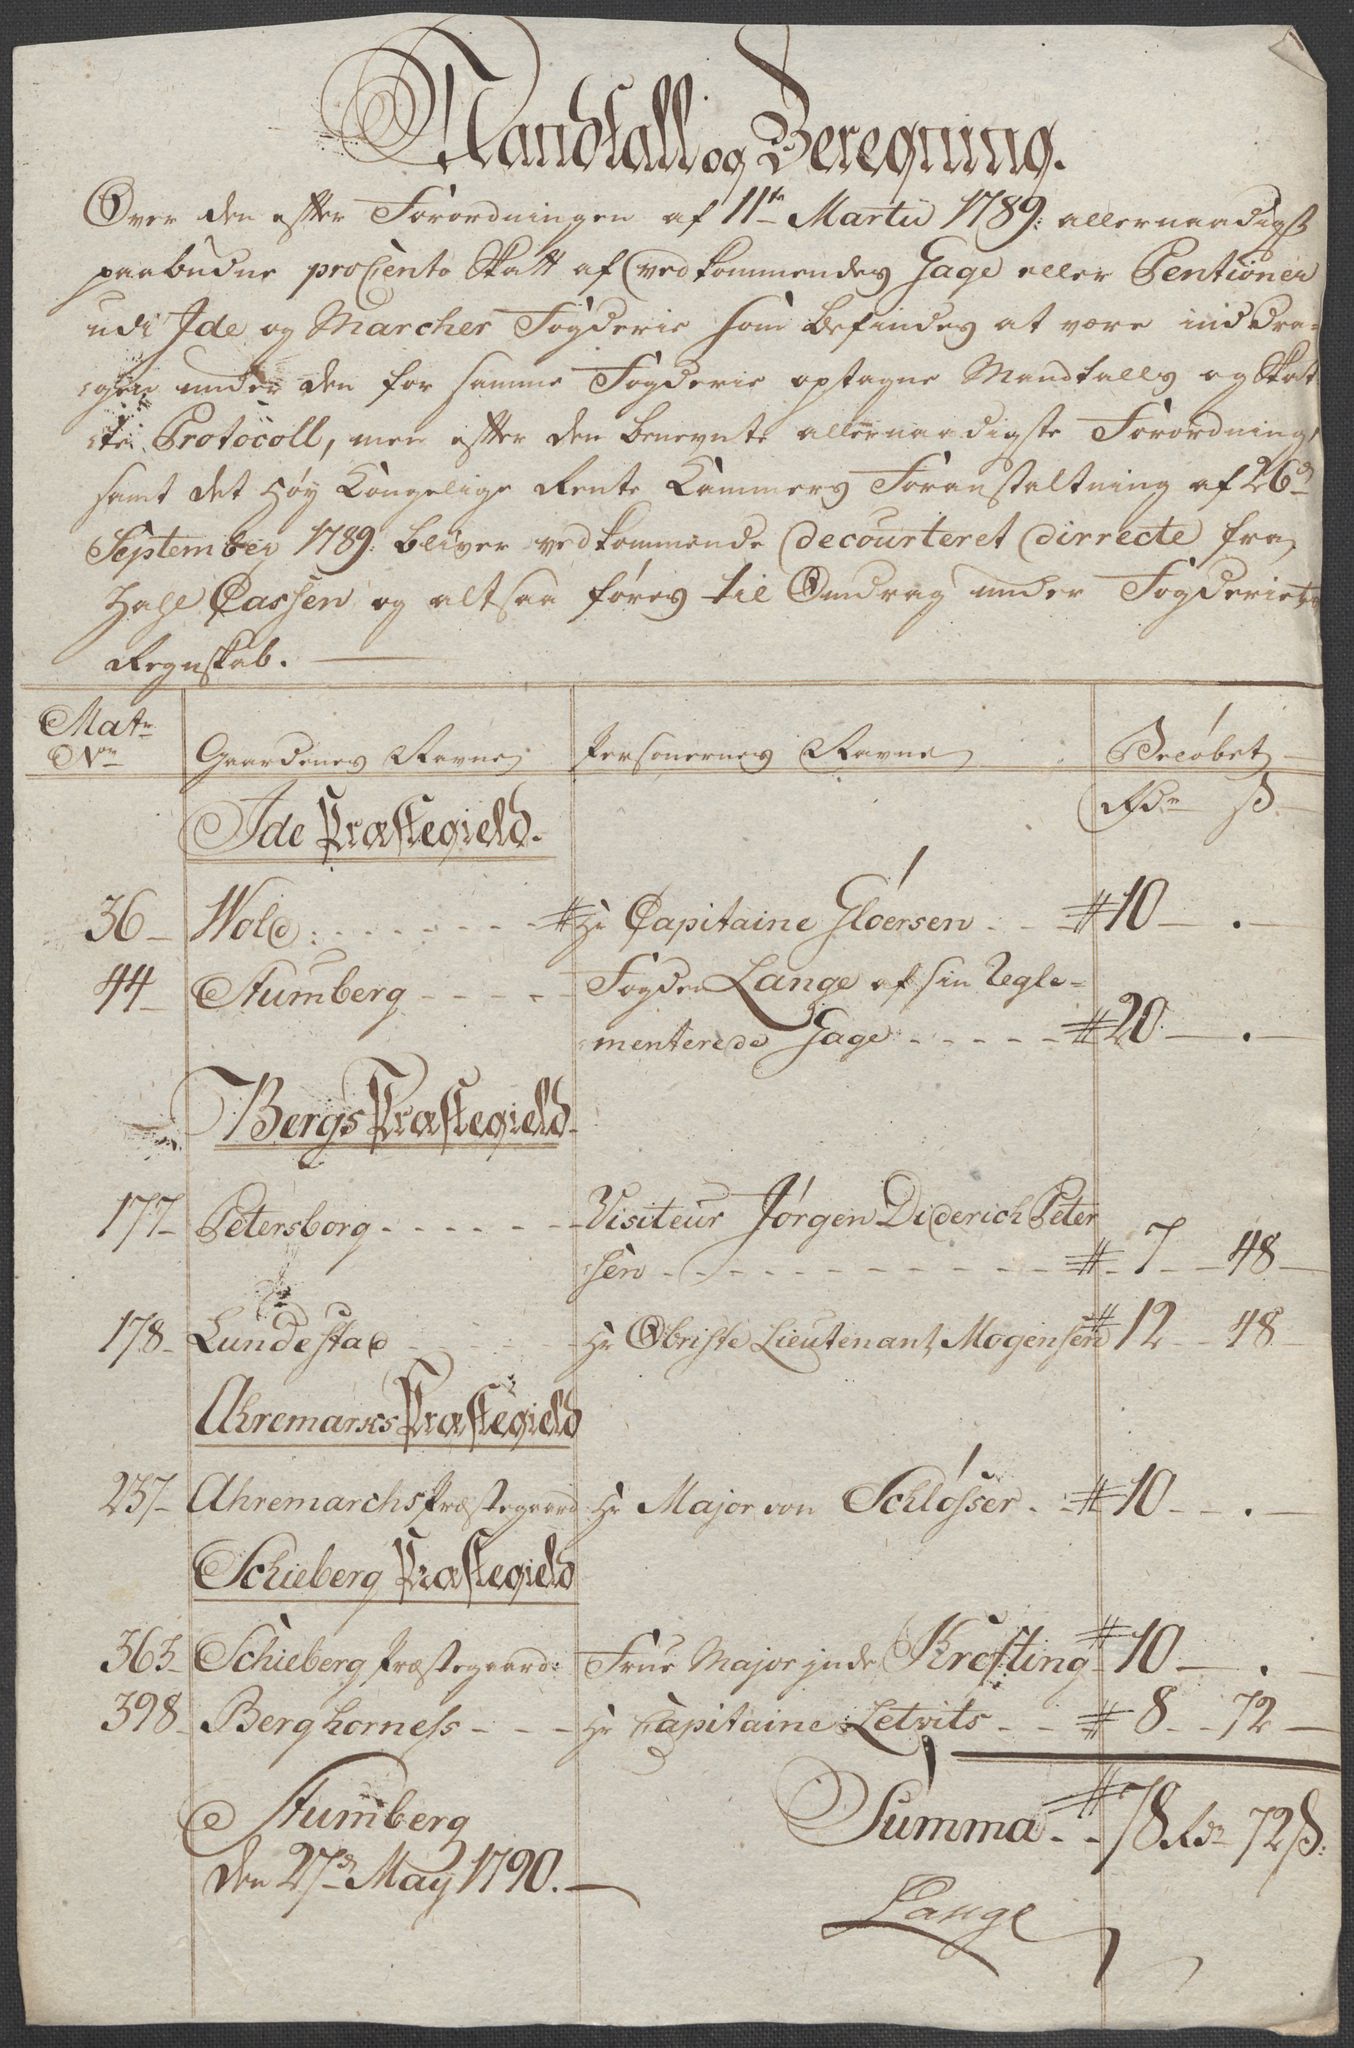 Mandtall og Beregning.
Over den efter Forordningen af 11te Martii 1789. allernaadigst
paabudne proCento Skatt af vedkommendes Gage eller Pentioner
udi Ide og Marcher Fogderie som befindes at være inddra-
gen under den for samme Fogderie optagne Mandtalls og Skat-
te Protocoll, men efter den benevnte allernaadigste Forordning,
samt det høy Kongelige Rente Kammers Foranstaltning af 26d
September 1789. bliver vedkommende decourteret dirrecte fra
Cassen og altsaa føres til Omdrag under Fogderiets
Regnskab.
Matr
Nr Gaardenes Navne Personernes Navne Beløbet
Rdr ß
Ide Præstegield.
36 Wold Hr Capitaine Gløersen # 10 .
44 Stumberg Fogden Lange af sin Regle-
menterede Gage # 20 .
Bergs Præstegield.
177 Petersborg Visiteur Jørgen Diderich Peter
sen # 7 48
178 Lundestad Hr Obriste Lieutenant Mogensen # 12 48
Ahremarks Præstegield
237 Ahremarchs Præstegaard Hr Major von Schløsser # 10 .
Schieberg Præstegield
363 Schieberg Præstegaard: Frue Majorinde Krefting # 10 .
398 Berg horness Hr Capitaine Letvits # 8 72
Summa # 78 Rdr 72 ß.
Stumberg
den 27d May 1790.
Lange